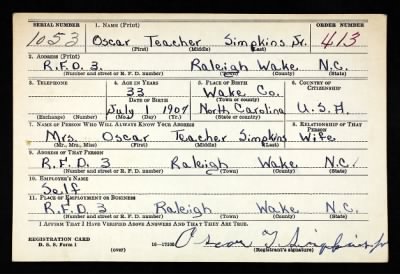 SERIAL NUMBER 1. NAME (Print) ORDER NUMBER
1053 Oscar Teacher Simpkins Jr. 413
(First) (Middle) (Last)
2. ADDRESS (Print)
R.F.D. 3. Raleigh Wake N.C.
(Number and street or R. F. D. number) (Town) (County) (State)
3. TELEPHONE 4. AGE IN YEARS 5. PLACE OF BIRTH 6. COUNTRY OF CITIZENSHIP
33 Wake Co.
DATE OF BIRTH (Town or county)
July 1 1907 North Carolina U.S.A.
(Exchange) (Number) (Mo.) (Day) (Yr.) (State or country)
7. NAME OF PERSON WHO WILL ALWAYS KNOW YOUR ADDRESS 8. RELATIONSHIP OF THAT PERSON
Mrs. Oscar Teacher Simpkins Wife
(Mr., Mrs., Miss) (First) (Middle) (Last)
9. ADDRESS OF THAT PERSON
R.F.D. 3 Raleigh Wake N.C.
(Number and street or R. F. D. number) (Town) (County) (State)
10. EMPLOYER'S NAME
Self
11. PLACE OF EMPLOYMENT OR BUSINESS
R.F.D. 3 Raleigh Wake N.C.
(Number and street or R. F. D. number) (Town) (County) (State)
I AFFIRM THAT I HAVE VERIFIED ABOVE ANSWERS AND THAT THEY ARE TRUE.
REGISTRATION CARD
D. S. S. Form 1 (over) 16-17105 Oscar T Simpkins Jr
(Registrant's signature)